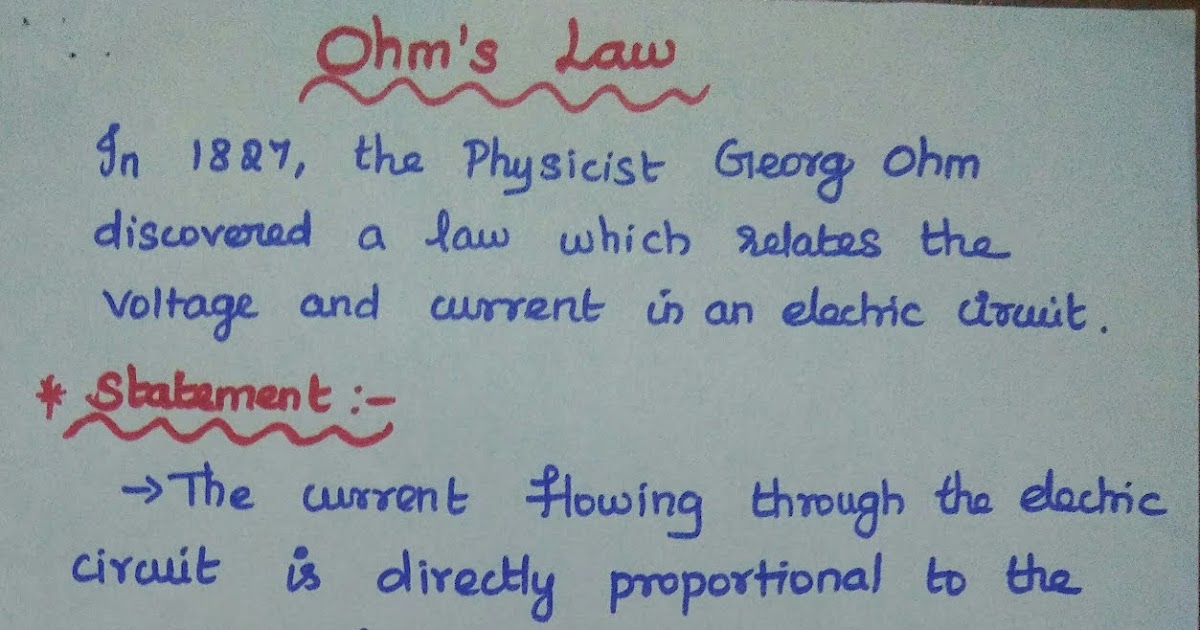 Ohm's Law
In 1827, the Physicist Georg Ohm
discovered a law which relates the
voltage and current in an electric circuit.
* Statement :-
→ The current flowing through the electric
circuit is directly proportional to the